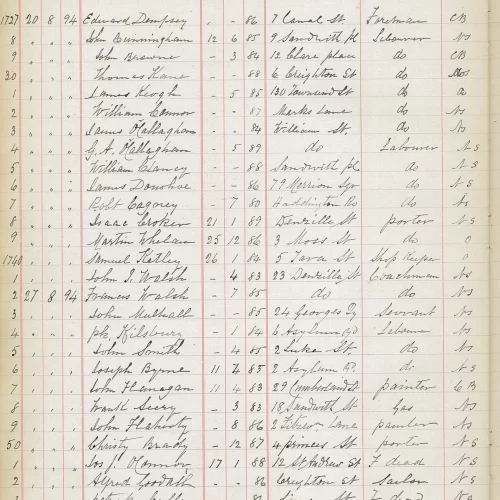 1727 20 8 94 Edward Dempsey , - 86 7 Canal St. Foreman CB
8 " " " John Cunningham 12 6 85 9 Sandwith Pl Labourer NS
9 " " " John Browne - 3 84 12 Clare place do CB
30 " " " Thomas Kane - - 88 6 Creighton St do
1 " " " James Keogh - 5 85 130 Townsend St do a
2 " " " William Connor - - 87 Marks Lane do NS
3 " " " James O'Callaghan - - 84 William St. do NS
4 " " " G. A. O'Callaghan - 5 89 do Labourer NS
5 " " " William Clancy - - 88 Sandwith Pl do NS
6 " " " James Donohoe - - 86 79 Merrion Sqr do NS
7 " " " Robt Cagorey - 7 80 Haddington Rd do NS
8 " " " Isaac Croker 21 1 89 Denzille St porter NS
9 " " " Martin Whelan 25 12 86 3 Moss St do O
1740 " " " Samuel Kelley 26 1 84 5 Tara St Shop Keeper O
1 " " " John J. Walsh - 4 83 23 Denzille St Coachman NS
2 27 8 94 Francis Walsh - 7 85 do do NS
3 " " " John Mulhall - - 85 24 Georges Qy Servant NS
4 " " " Pk. Kilsbury - 1 84 6 Asylum Yd Labourer NS
5 " " " John Smith - 4 85 2 Luke St. do NS
6 " " " Joseph Byrne 11 7 85 2 Asylum do NS
7 " " " John Flanagan 11 4 83 29 Cumberland St painter CB
8 " " " Frank Seery - 3 83 18 Sandwith St Gas NS
9 " " " John Flaherty - 8 86 2 Fitzwm Lane painter NS
50 " " " Christy Brady - 12 87 4 princes St porter NS
1 " " " Jos J. O'Connor 17 1 88 12 St Andrew St F dead NS
2 " " " Alfred Goodath - - 86 Creighton St sailor NS